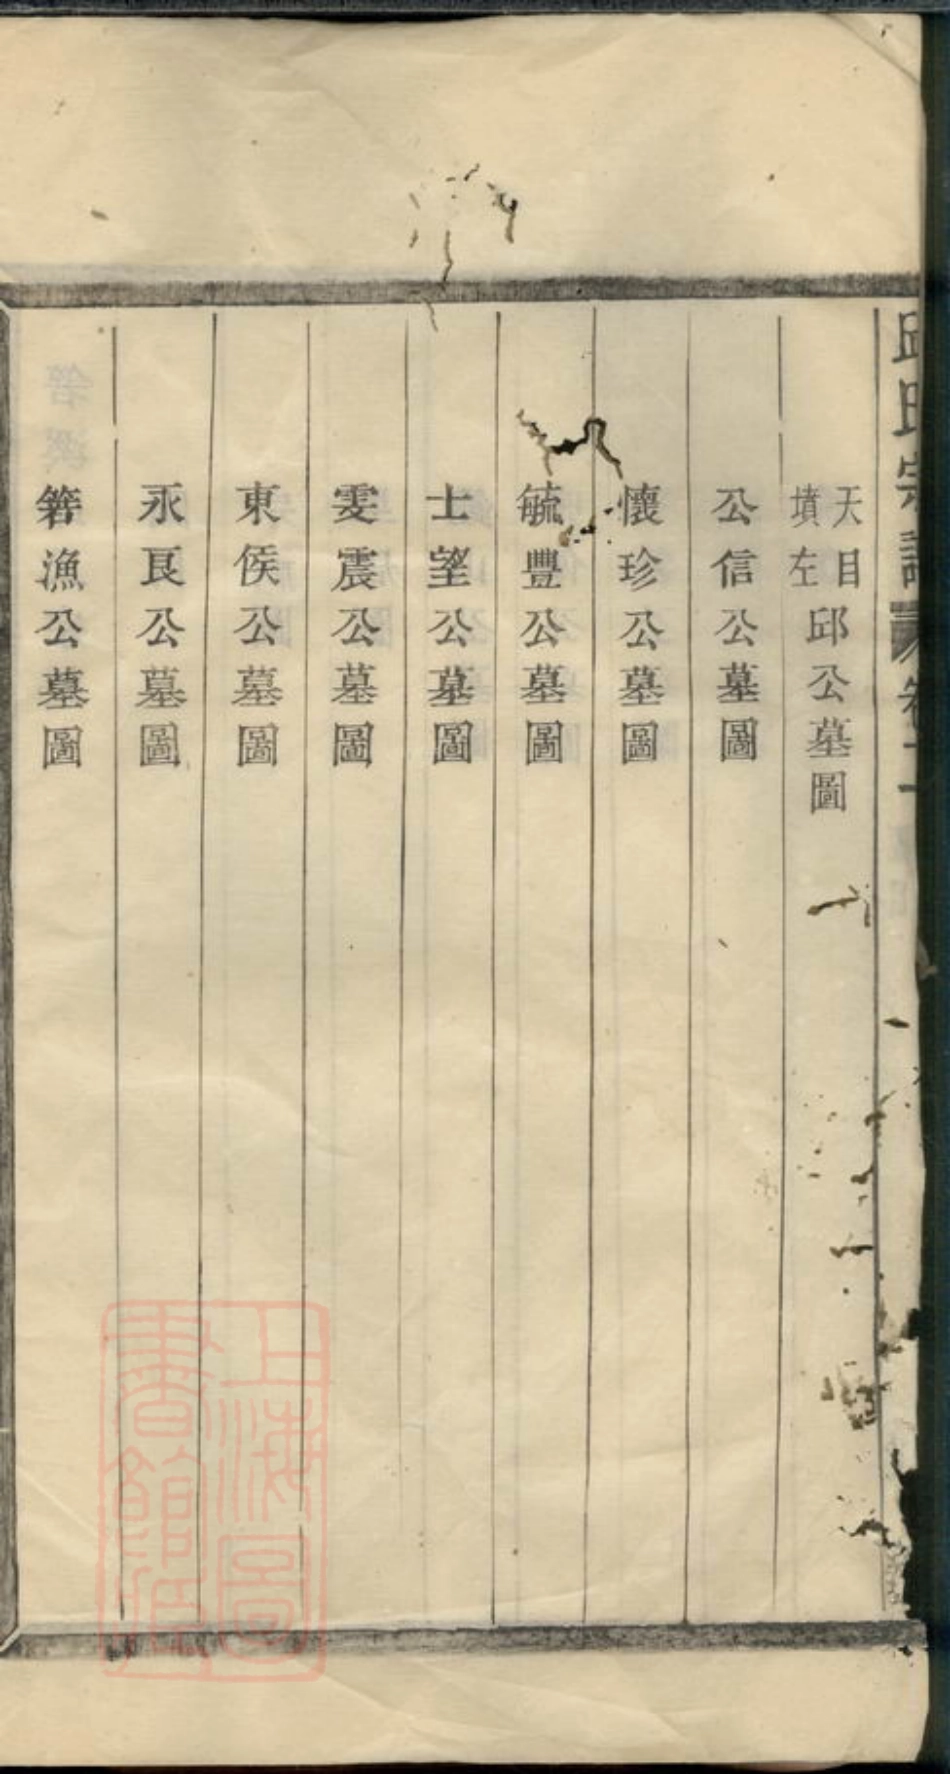 邱氏宗譜 卷十一
天目墳左邱公墓圖
公信公墓圖
懷珍公墓圖
毓豐公墓圖
士望公墓圖
雯震公墓圖
東侯公墓圖
永良公墓圖
箬漁公墓圖
上海圖書館藏